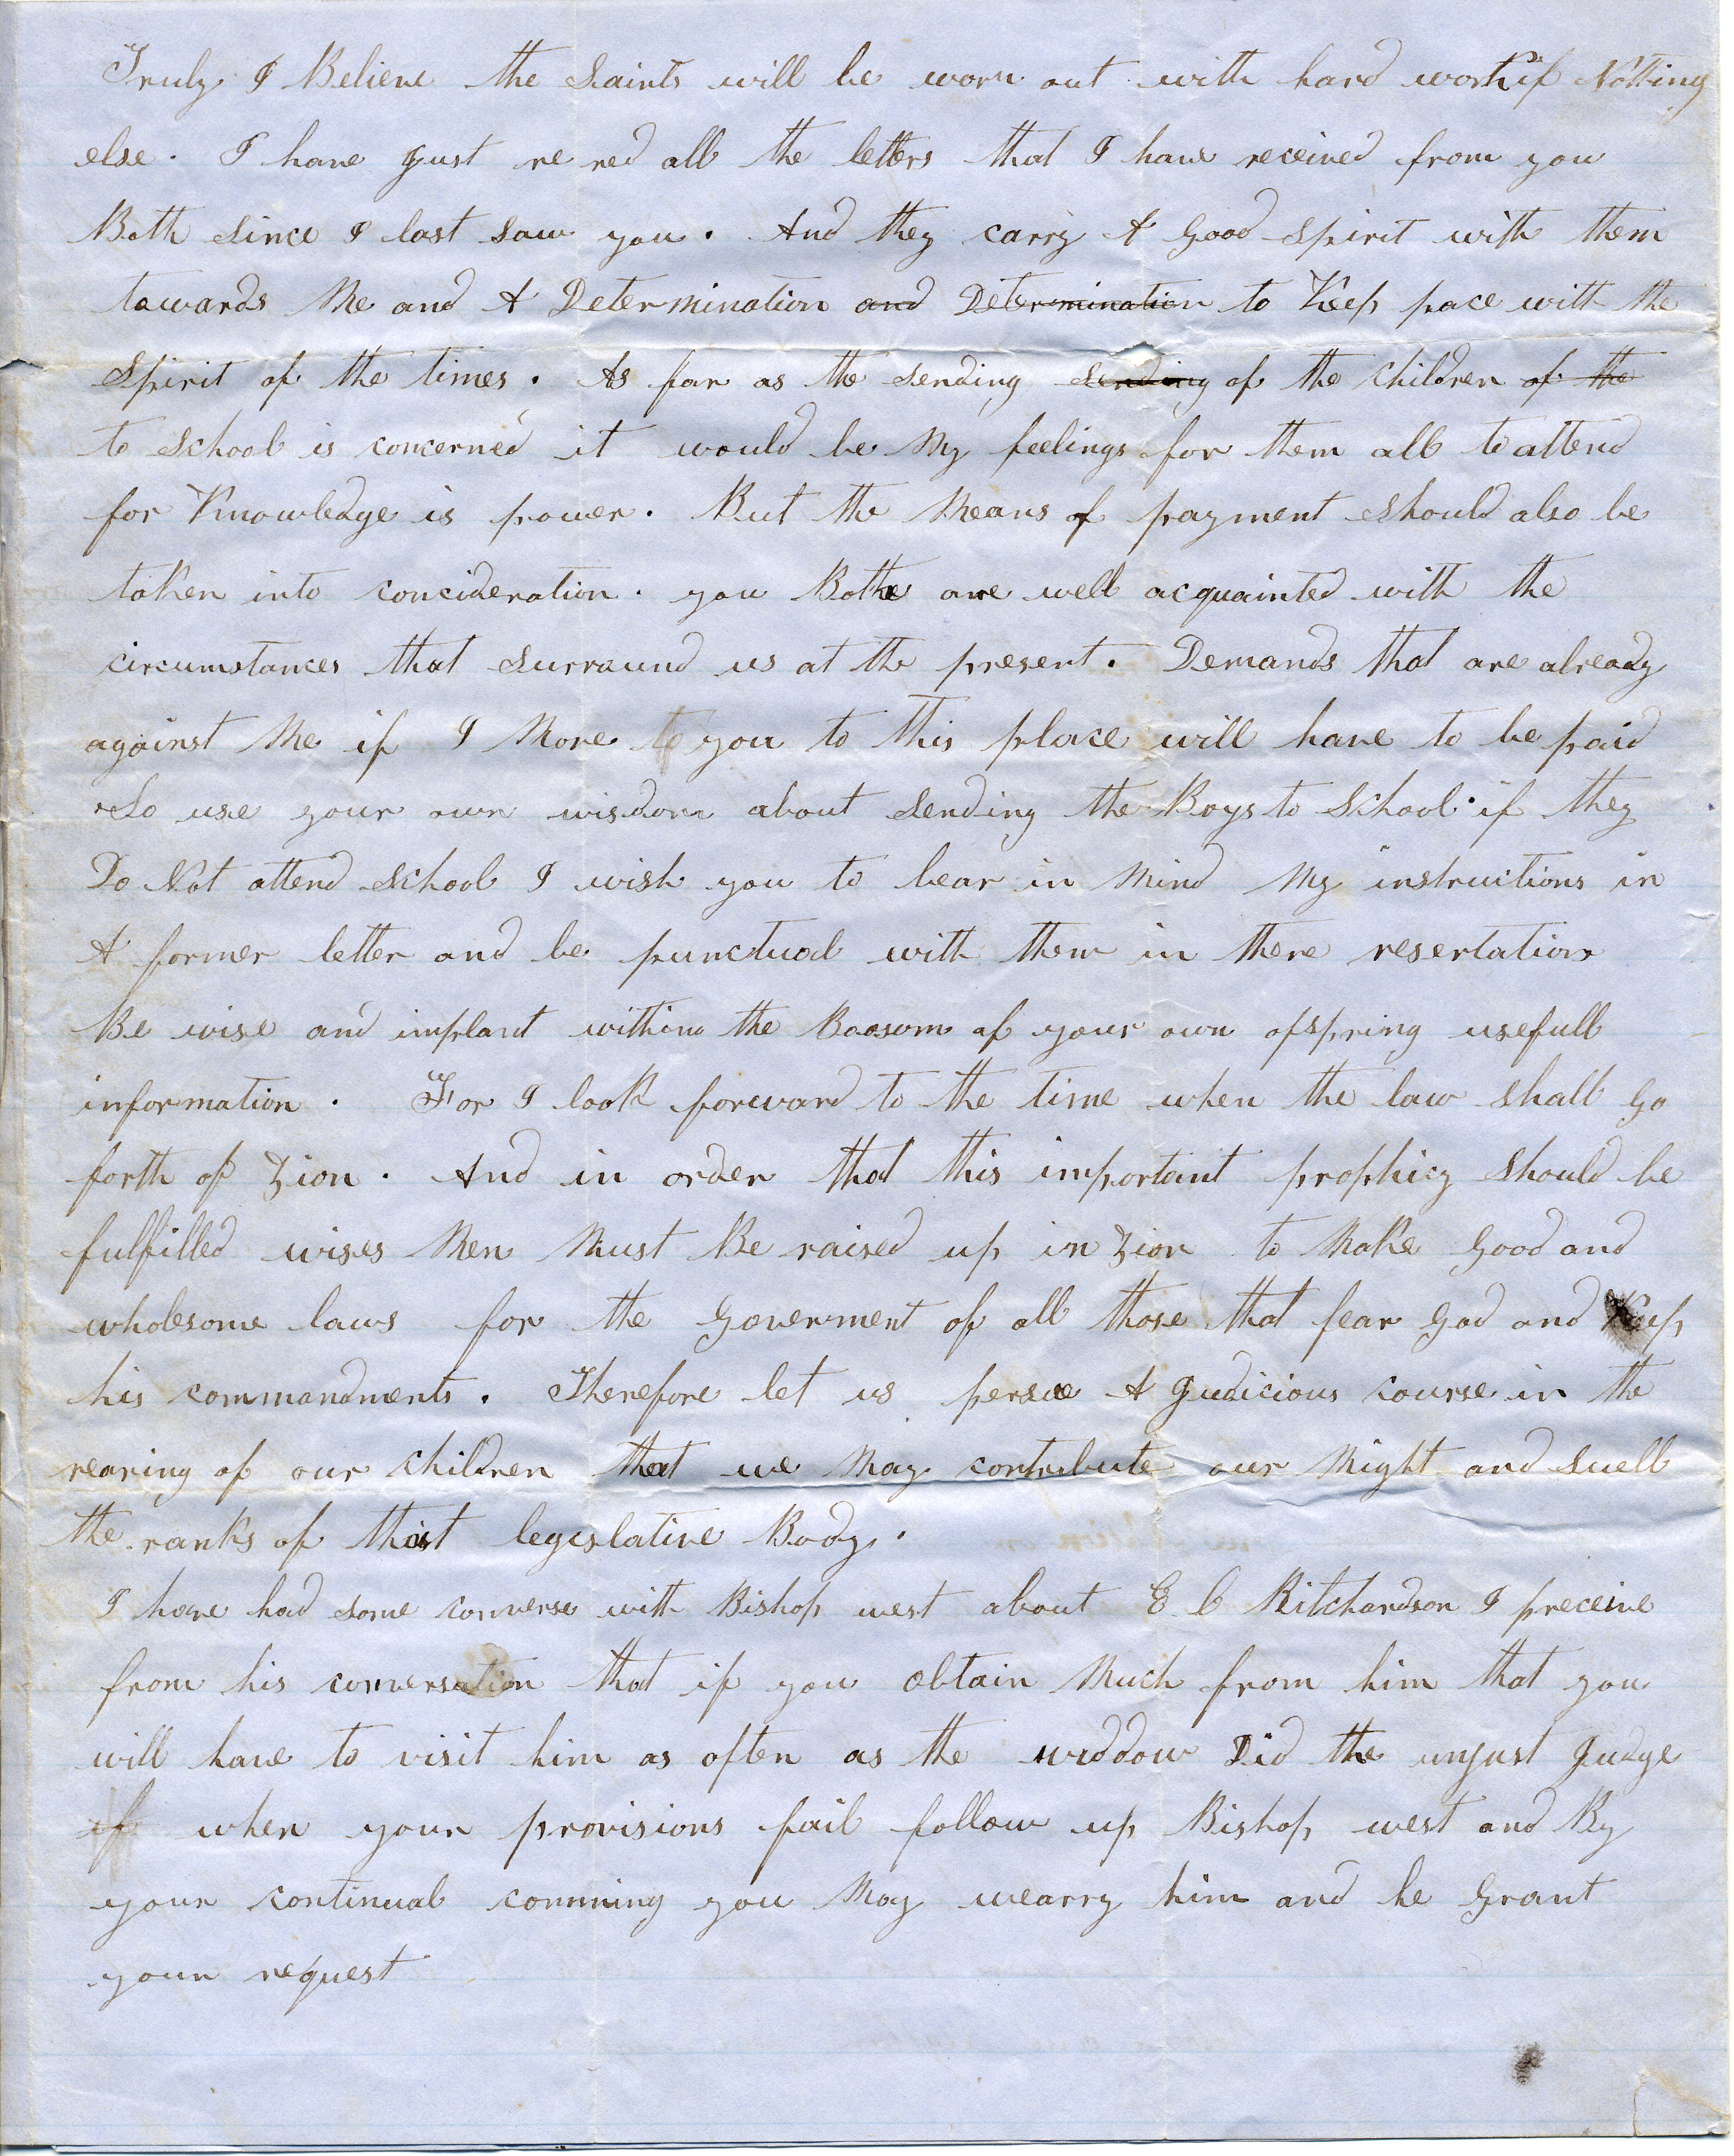 Truly I Believe the Saints will be worn out with hard work if Notting
else. I have just re red all the letters that I have received from you
Both since I last saw you. And they carry A Good Spirit with them
towards Me and A Determination and Determination to Keep pace with the
Spirit of the times. As far as the sending sending of the children of the
to School is concerned it would be My feelings for them all to attend
for Knowledge is power. But the Means of payment should also be
taken into concideration. you Bothe are well acquainted with the
circumstances that surround us at the present. Demands that are already
against Me if I Move to you to this place will have to be paid
So use your own wisdom about sending the Boys to School. if they
Do Not attend School I wish you to bear in Mind My instructions in
A former letter and be punctual with them in there resertation
Be wise and implant within the Boosom of your own ofspring usefull
information. For I look forward to the time when the law shall Go
forth of Zion. And in order that this important prophicy should be
fulfilled wises Men Must Be raised up in Zion to Make Good and
wholesome laws for the Goverment of all those that fear God and Keep
his commandments. Therefore let us persue A Judicious course in the
rearing of our children that we May contribute our Might and swell
the ranks of that legislative Body.
I have had some converse with Bishop west about E C Ritchardson I preceive
from his conversation that if you obtain Much from him that you
will have to visit him as often as the widdow Did the unjust Judge
if when your provisions fail follow up Bishop west and By
your continual comming you May wearry him and he Grant
your request